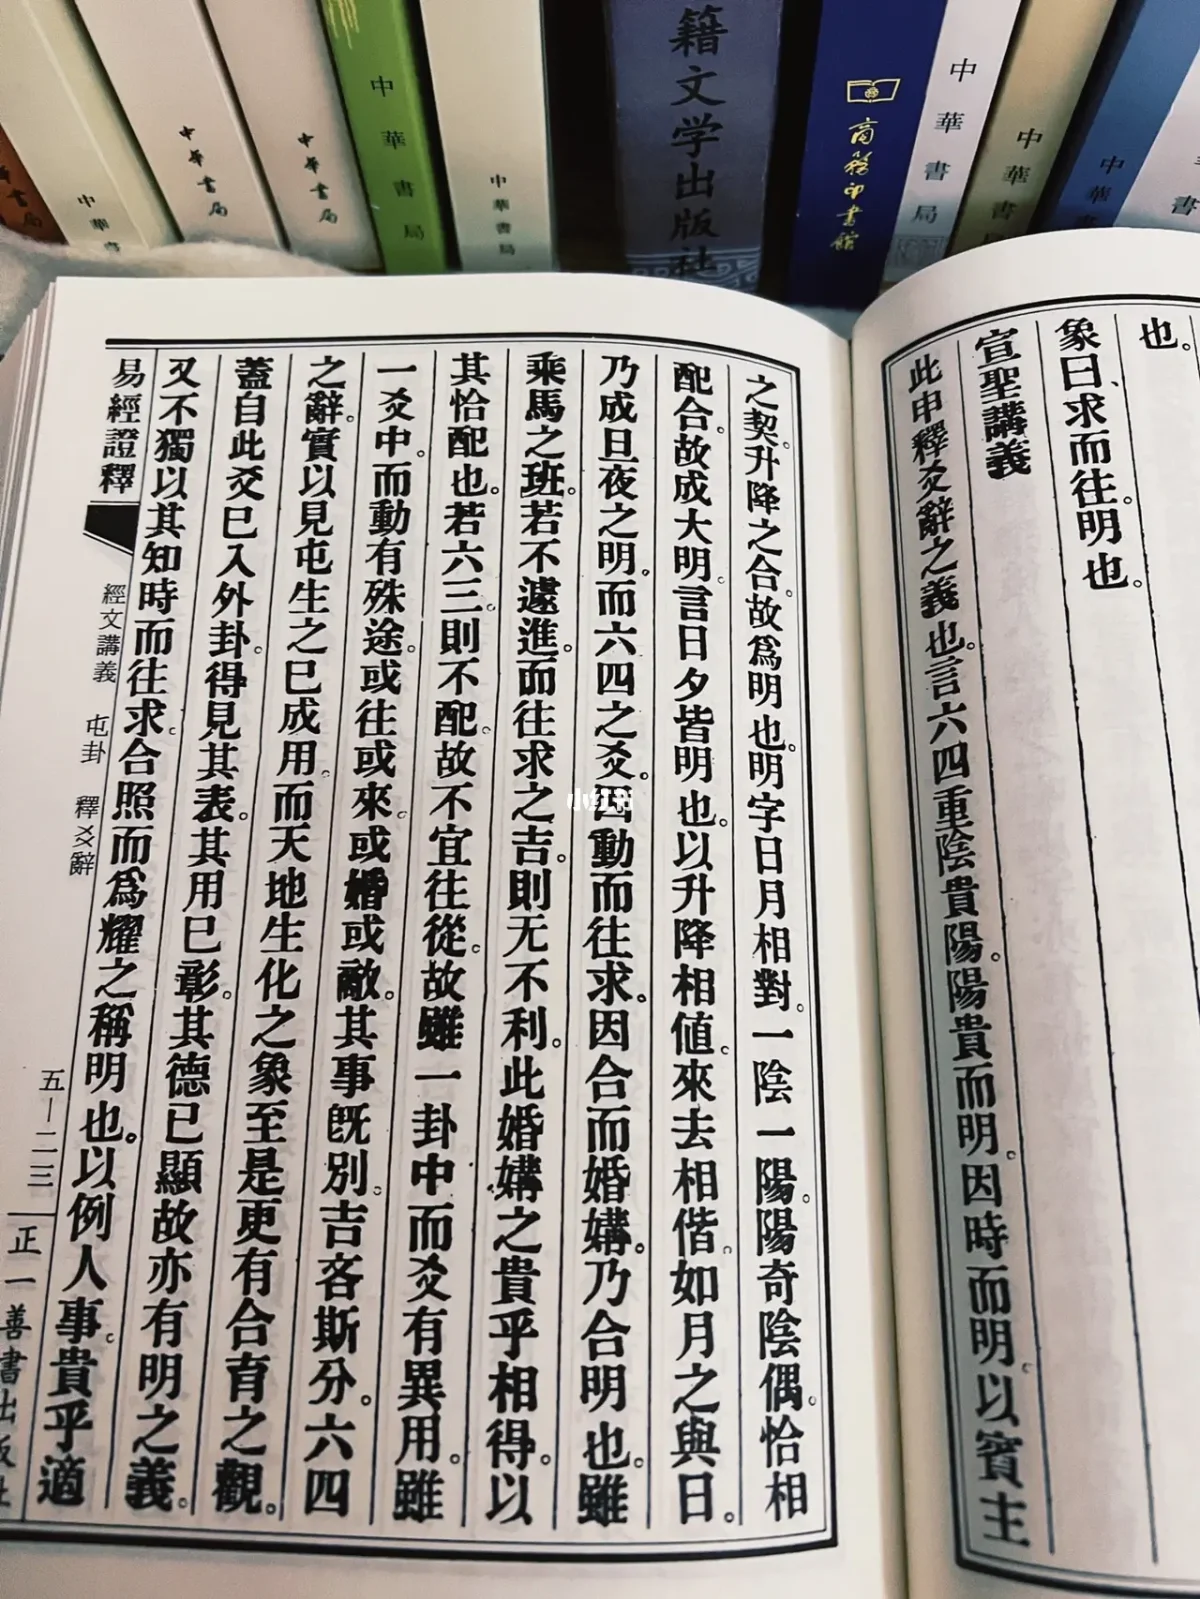 中華書
中華書局
中華書局
中華書局
中華書局
籍文学出版社
商務印書館
中華書局
中華書
中華
書
也。
象曰、求而往。明也。
宣聖講義
此申釋爻辭之義也。言六四重陰貴陽。陽貴而明。因時而明。以賓主
之契。升降之合。故為明也。明字日月相對。一陰一陽。陽奇陰偶。恰相
配合。故成大明。言日夕皆明也。以升降相値。來去相偕。如月之與日。
乃成旦夜之明。而六四之爻。因動而往求。因合而婚媾。乃合明也。雖
乘馬之班。若不遽進。而往求之吉。則无不利。此婚媾之貴乎相得。以
其恰配也。若六三。則不配。故不宜往從。故雖一卦中而爻有異用。雖
一爻中。而動有殊途。或往或來。或婚或敵。其事旣別。吉吝斯分。六四
之辭。實以見屯生之已成用。而天地生化之象至是更有合育之觀。
蓋自此爻已入外卦。得見其表。其用已彰。其德已顯故亦有明之義。
又不獨以其知時而往求。合照而為耀之稱明也。以例人事。貴乎適
易經證釋
經文講義 屯卦 釋爻辭
五—二三
正一善書出版社
小红书